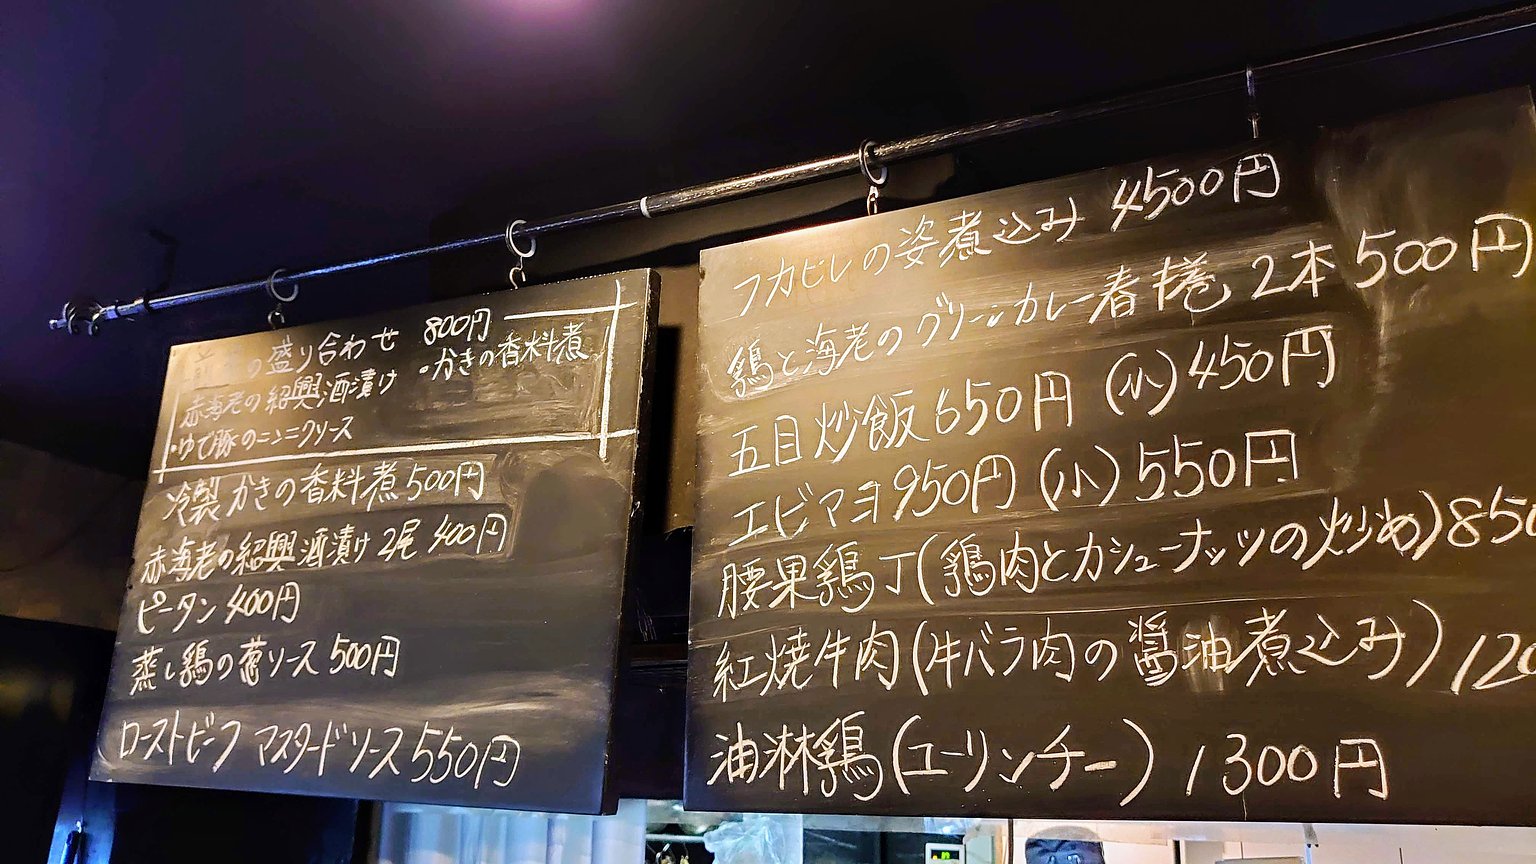 の盛り合わせ 800円
・かきの香料煮
赤海老の紹興酒漬け
・ゆで豚のニンニクソース
冷製かきの香料煮 500円
赤海老の紹興酒漬け 2尾 400円
ピータン 400円
蒸し鶏の葱ソース 500円
ローストビーフ マスタードソース 550円
フカヒレの姿煮込み 4500円
鶏と海老のグリーンカレー春巻 2本 500円
五目炒飯 650円 (小) 450円
エビマヨ 950円 (小) 550円
腰果鶏丁(鶏肉とカシューナッツの炒め) 850
紅焼牛肉(牛バラ肉の醤油煮込み) 120
油淋鶏(ユーリンチー) 1300円